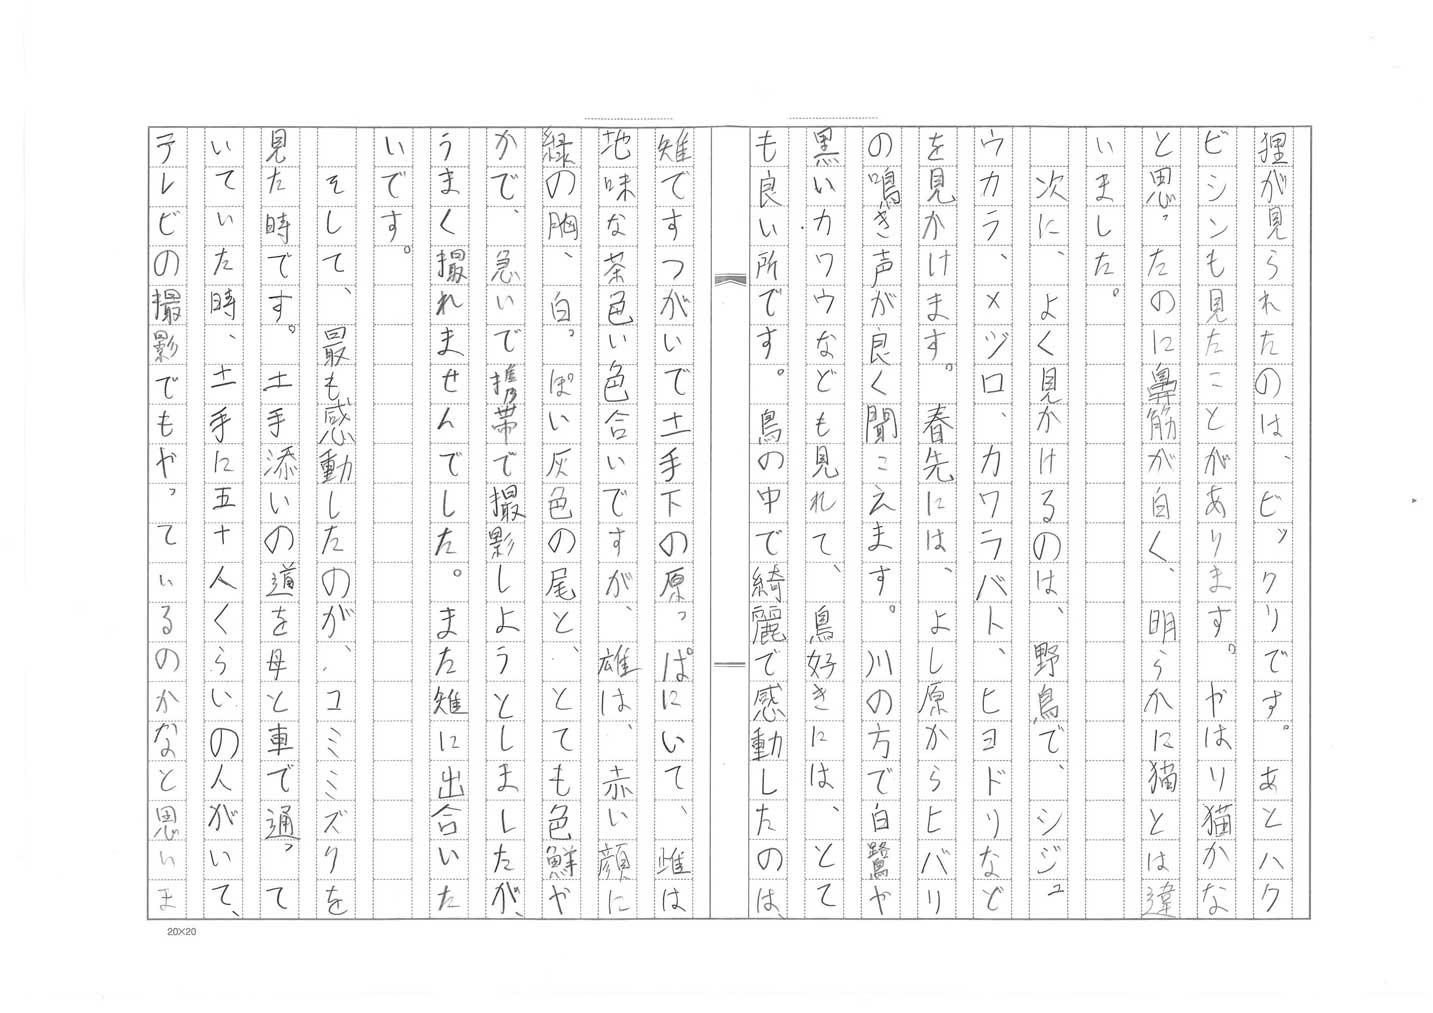 狸が見られたのは、ビックリです。あとハク
ビシンも見たことがあります。やはり猫かな
と思ったのに鼻筋が白く、明らかに猫とは違
いました。
次に、よく見かけるのは、野鳥で、シジュ
ウカラ、メジロ、カワラバト、ヒヨドリなど
を見かけます。春先には、よし原からヒバリ
の鳴き声が良く聞こえます。川の方で白鷺や
黒いカワウなども見れて、鳥好きには、とて
も良い所です。鳥の中で綺麗で感動したのは、
雉ですつがいで土手下の原っぱにいて、雌は
地味な茶色い色合いですが、雄は、赤い顔に
緑の胸、白っぽい灰色の尾と、とても色鮮や
かで、急いで携帯で撮影しようとしましたが、
うまく撮れませんでした。また雉に出合いた
いです。
そして、最も感動したのが、コミミズクを
見た時です。土手添いの道を母と車で通って
いていた時、土手に五十人くらいの人がいて、
テレビの撮影でもやっているのかなと思いま
20×20